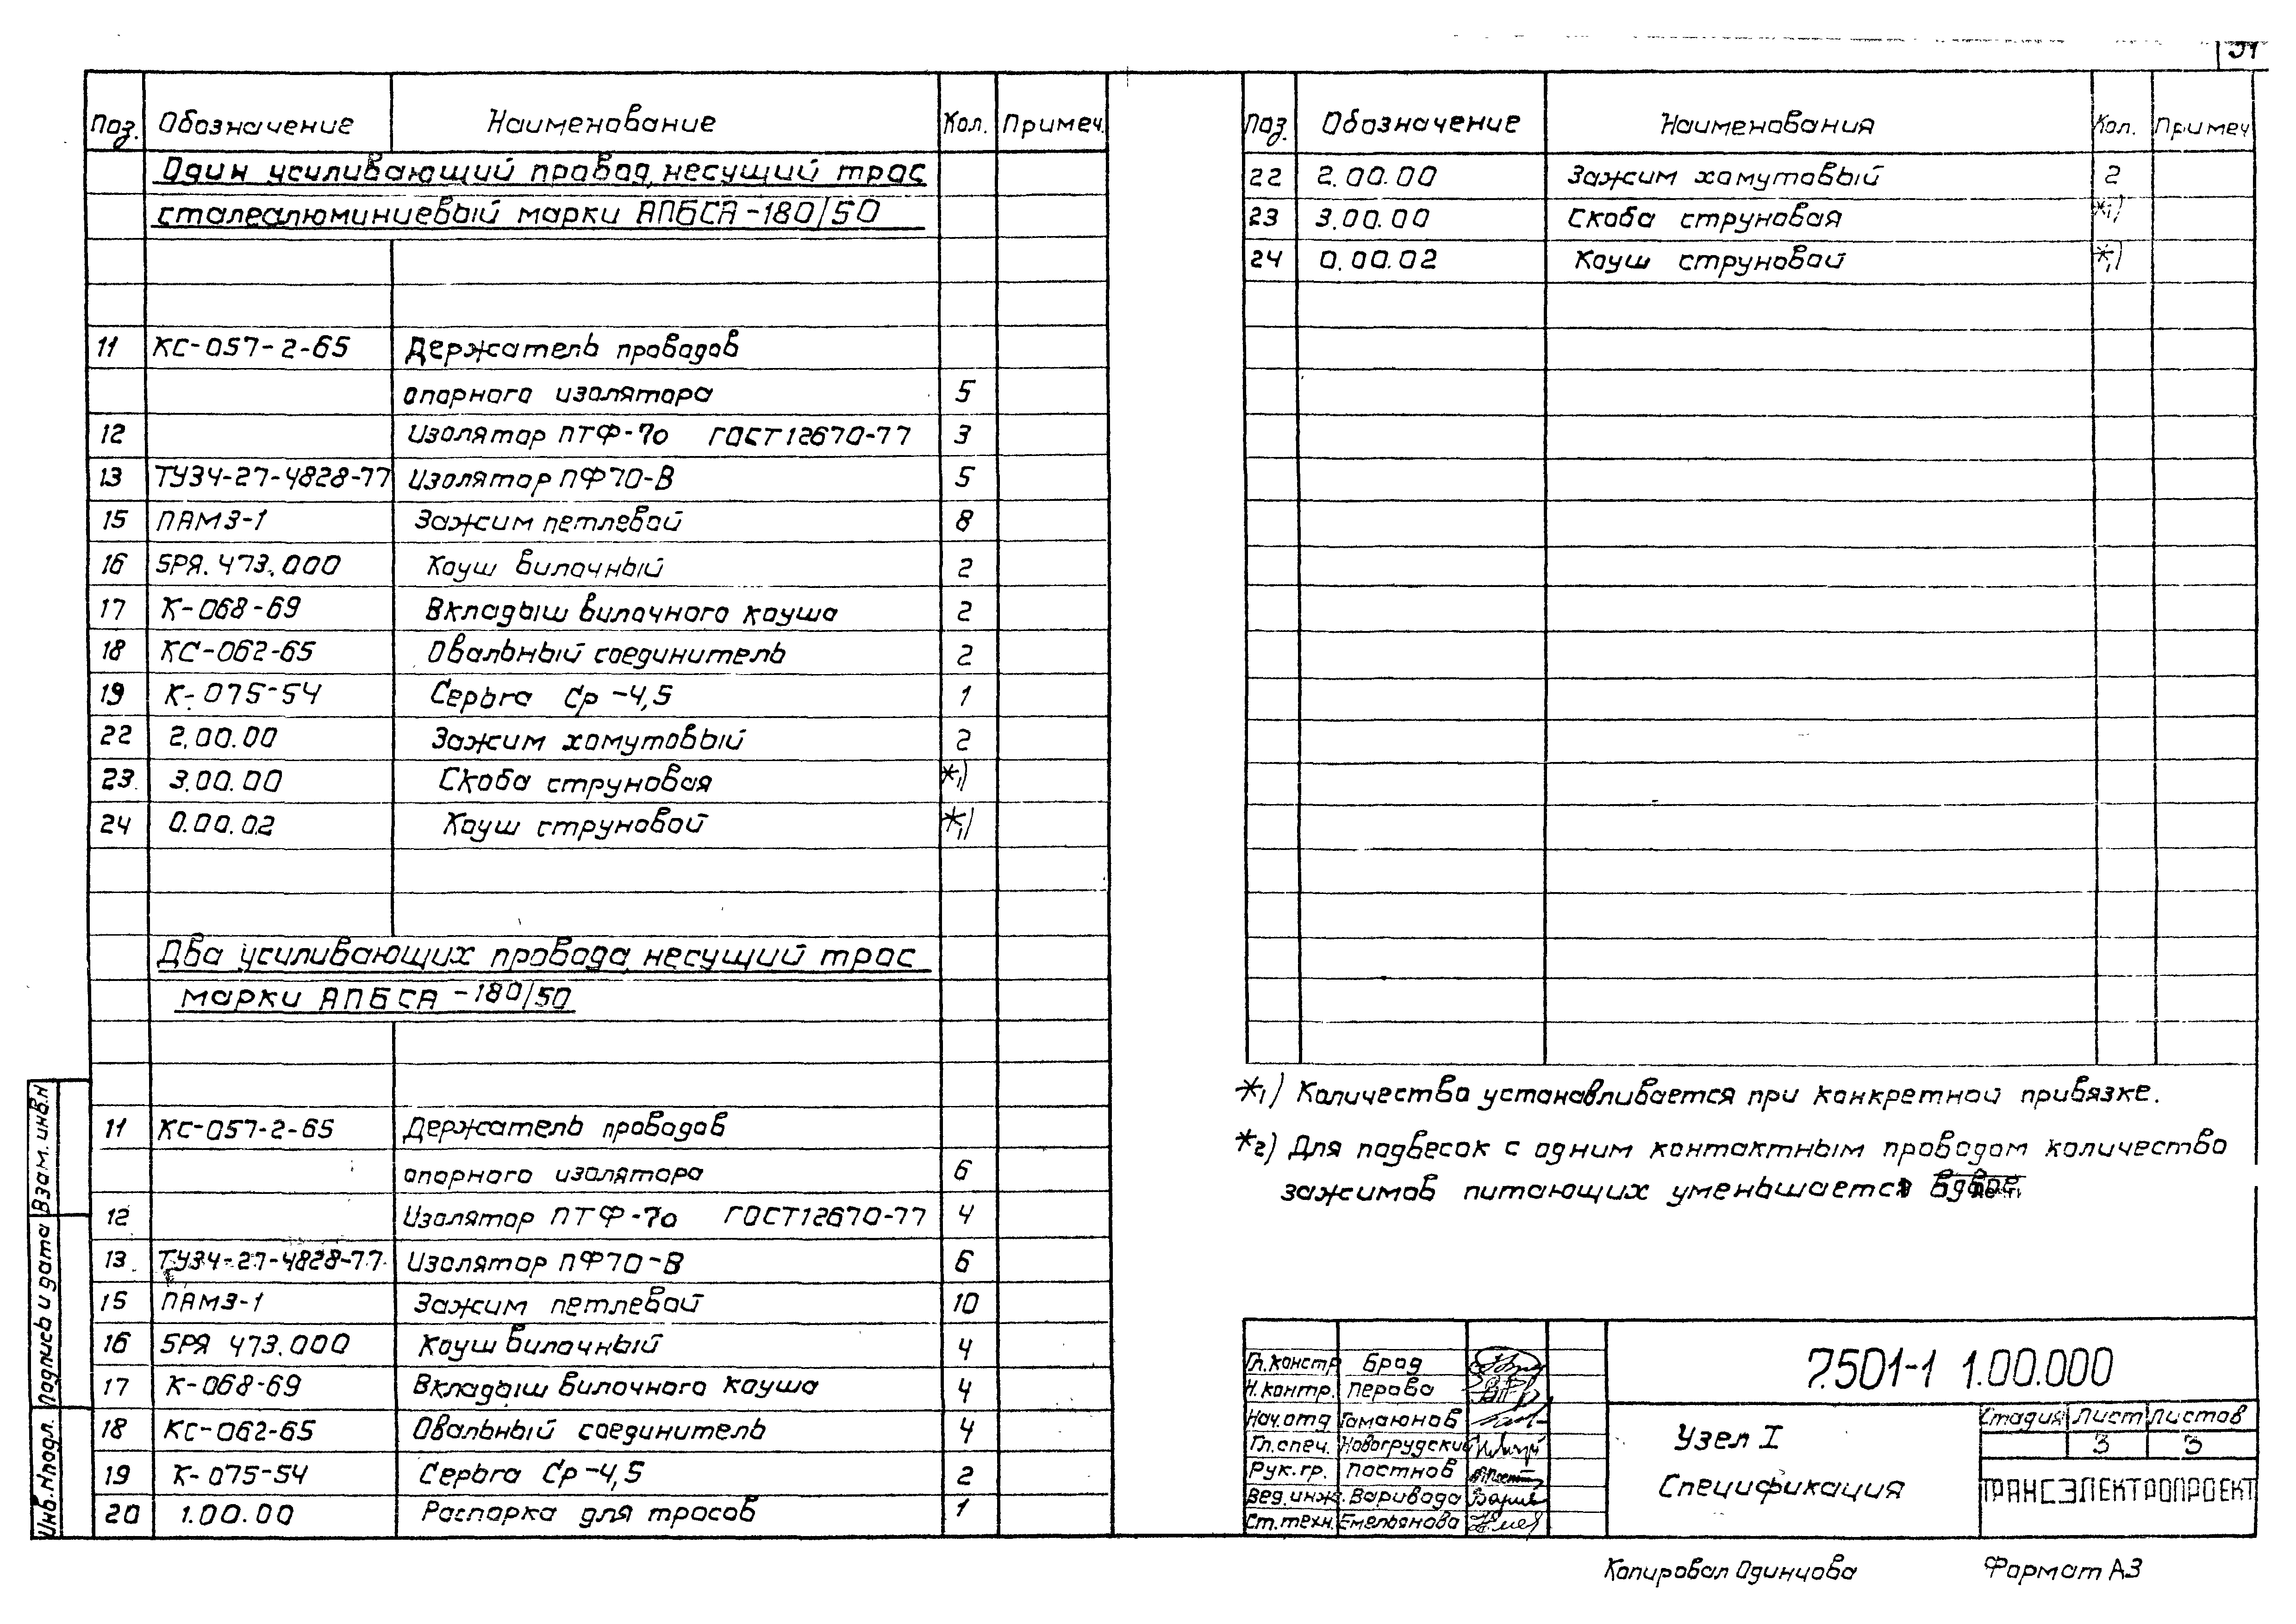 Поз. Обозначение Наименование Кол. Примеч.
Один усиливающий провод, несущий трос
сталеалюминиевый марки АПБСА-180/50
11 КС-057-2-65 Держатель проводов
опорного изолятора 5
12 Изолятор ПТФ-70 ГОСТ12670-77 3
13 ТУ34-27-4828-77 Изолятор ПФ70-В 5
15 ПАМЗ-1 Зажим петлевой 8
16 5РЯ.473.000 Коуш вилочный 2
17 К-068-69 Вкладыш вилочного коуша 2
18 КС-062-65 Овальный соединитель 2
19 К-075-54 Серьга Ср-4,5 1
22 2.00.00 Зажим хомутовый 2
23 3.00.00 Скоба струновая *1)
24 0.00.02 Коуш струновой *1)
Два усиливающих провода, несущий трос
марки АПБСА-180/50
11 КС-057-2-65 Держатель проводов
опорного изолятора 6
12 Изолятор ПТФ-70 ГОСТ12670-77 4
13 ТУ34-27-4828-77 Изолятор ПФ70-В 6
15 ПАМЗ-1 Зажим петлевой 10
16 5РЯ 473.000 Коуш вилочный 4
17 К-068-69 Вкладыш вилочного коуша 4
18 КС-062-65 Овальный соединитель 4
19 К-075-54 Серьга Ср-4,5 2
20 1.00.00 Распорка для тросов 1
Поз. Обозначение Наименования Кол. Примеч
22 2.00.00 Зажим хомутовый 2
23 3.00.00 Скоба струновая *1)
24 0.00.02 Коуш струновой *1)
*1) Количество устанавливается при конкретной привязке.
*2) Для подвесок с одним контактным проводом количество
зажимов питающих уменьшается вдвое
Гл.констр Брод
Н.контр. Перова
Нач.отд Гамаюнов
Гл.спец. Новогрудский
Рук.гр. Постнов
Вед.инж. Варивода
Ст.техн. Емельянова
7.501-1 1.00.000
Узел I
Спецификация
Стадия Лист Листов
3 3
ТРАНСЭЛЕКТРОПРОЕКТ
Копировал Одинцова Формат А3
Инв.№подл. Подпись и дата Взам.инв.№